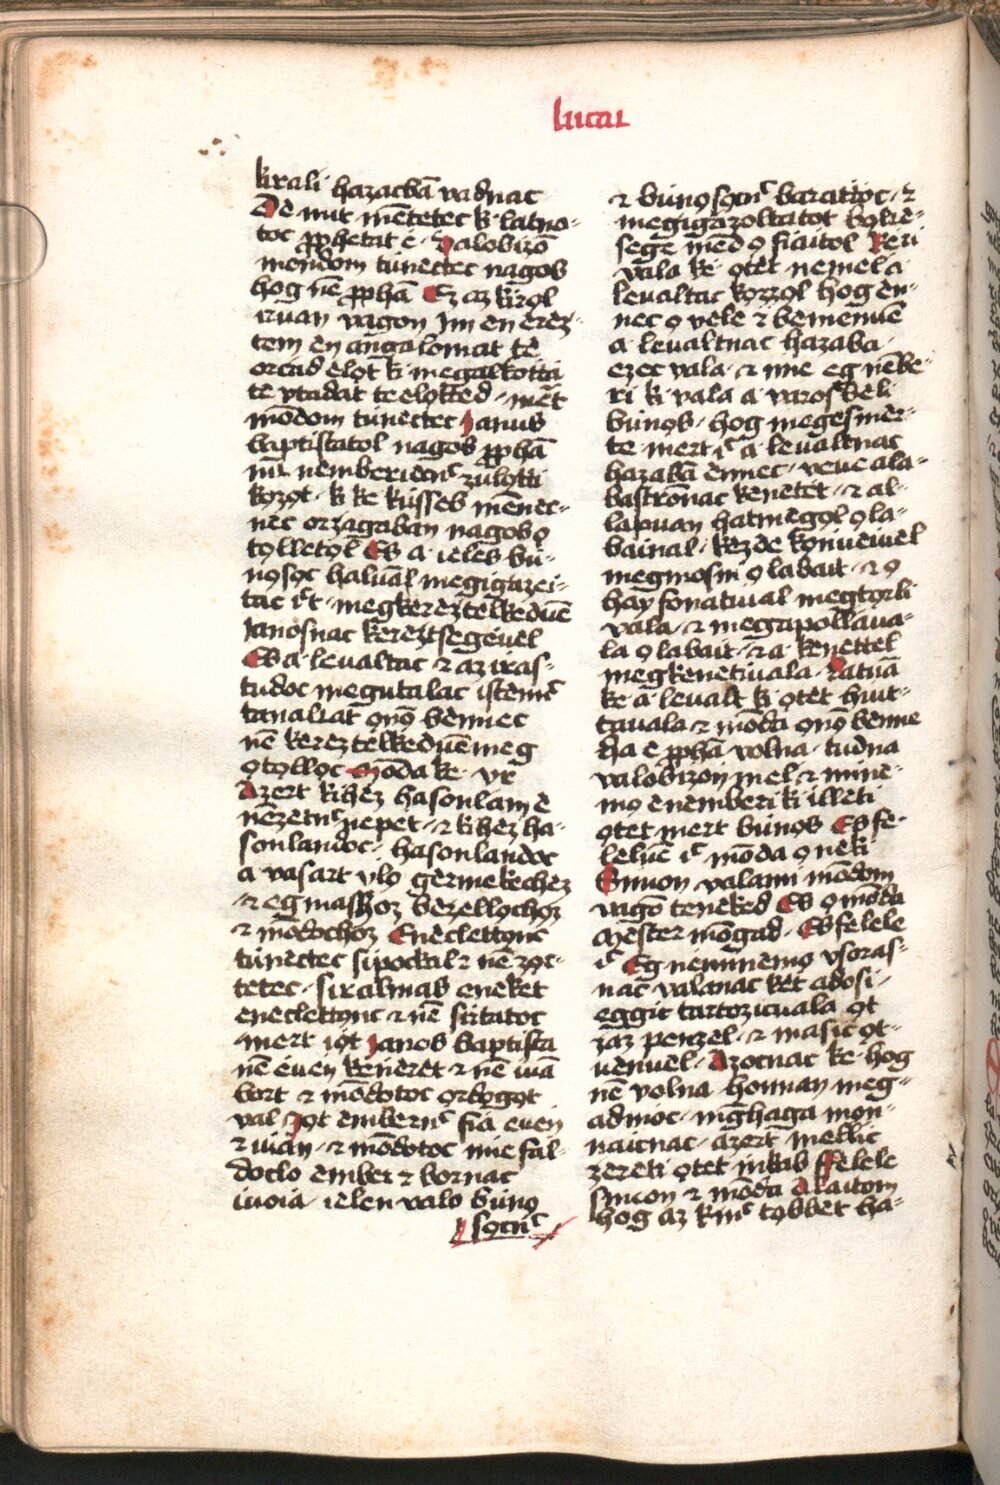 lucaɪ
kirali hazacbā vadnac
De mit mētetec k latno-
toc ꝓphetat e · yalobizō
mendom tünectec nagob
hog nē ꝓphā Ez az kirol
iruan vagon Im en erez-
tem en āngalomat te
orcād elot k megalkotta
te vtadat te elotted · mēt
mōdom tünectec Janus
baptistatol nagob ꝓphā
niī nemberiecn̄c zulotti
kozot · k ke küsseb mēnec-
nec orzagaban nagob o
tolletol Es a ieles bü-
nosoc haluāl megigazei-
tac ict · megkereztelkeduē
Janosnac kereztsegeuel
Es a · leualtac ⁊ az iras-
tudoc megutalac istennc
tanaliat ono bennec
nē kereztelkeduē meg
otolloc Mōda ke · vr
Azert kihez hasonlam e
nēzetnc nepet · ⁊ kihez ha-
sonlandoc · hasonlandoc
a vasart vlo germekechez
⁊ egmashoz bezellochoz
⁊ mōdochoz Eneclettonc
tünectec sipockal ⁊ nē zoc-
tetec · siralmas eneket
eneclettonc ⁊ nē sirtatoc
mert iot Janos baptista
nē éuen keneret ⁊ nē iuā
bort ⁊ mōdotoc ordogot
val Jot embernc fia euen
⁊ iuian · ⁊ mōdotoc imie fal-
doclo ember ⁊ bornac
iuoia · ielen valo büno
socnc
⁊ bünosocnc barattoc · ⁊
megigazoltatot bolce-
sege mēd o fiaitol Keri
vala ke otet nemel a
leualtac kozzol hog en-
nec o vele ⁊ bemenuē
a leualtnac hazaba ·
ezec vala · ⁊ ime eg nēbe-
ri k vala a varosbeli
bünos · hog megesmer-
te mert ic a leualtnac
hazabā ennec · veue ala-
bastromac kenetet · ⁊ al-
lapuan hatmegol o la-
bainal · kezde konueiuel
megmosni o labait · ⁊ o
hay fonatiual megtorli
vala · ⁊ megapollaua-
la o labait · ⁊ a kenettel
megkenetiuala · Latuā
ke a leualt k otet hiut-
tauala ⁊ mōda ono benne
Ha e ꝓphā volna · tudna
valobizon mel · ⁊ mine-
mo e nemberi ki illeti
otet mert bünos Es fe-
leluē ic mōda o neki
Simon valami mōdom
vagō teneked Es o mōda
Mester mōgad · Es felele
ic Eg neminemo vsoras-
nac valanac ket adosi ·
eggic tartozicuala ot
zaz penzel · ⁊ masic ot-
uenuel · Azocnac ke · hog
nē volna honnan meg-
adnioc · mēghaga mon-
naicnac · azert mellic
zereti otet inkab Felele
simon ⁊ mōda Alaitom
hog az kinc tobbet ha-